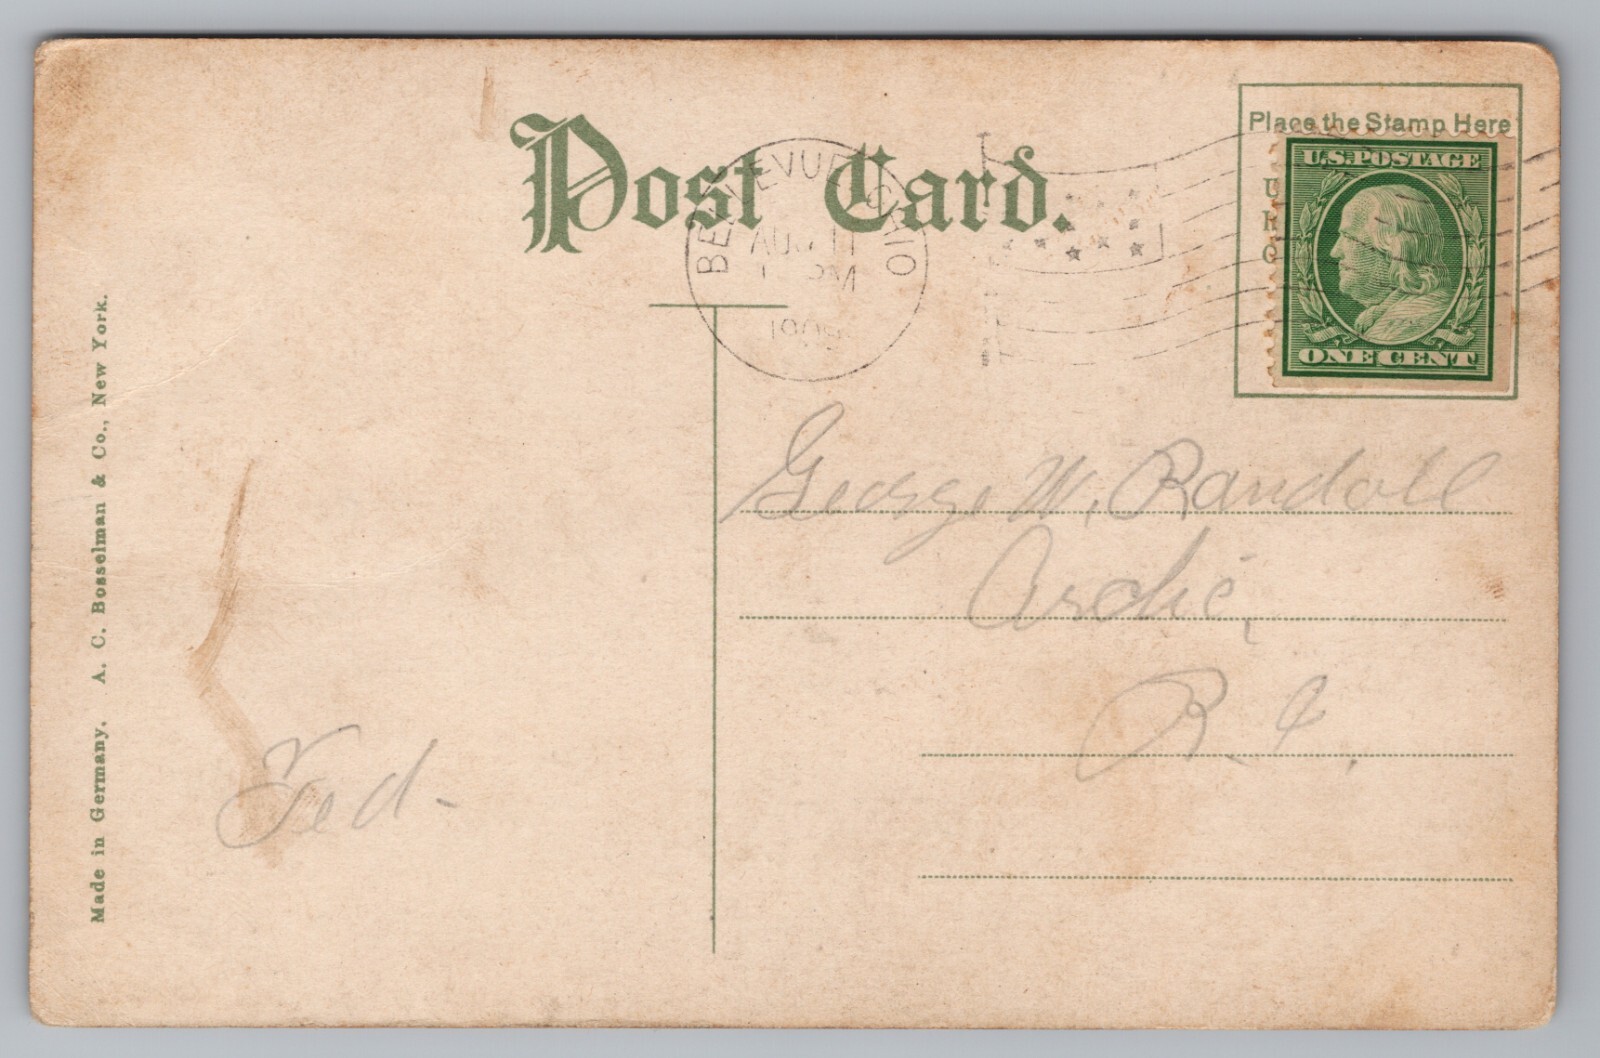 Post Card.
Place the Stamp Here
U.S. POSTAGE
ONE CENT
BELLEVUE OHIO
AUG 11
PM
George W. Randall
R.
Ted-
Made in Germany. A. C. Bosselman & Co., New York.